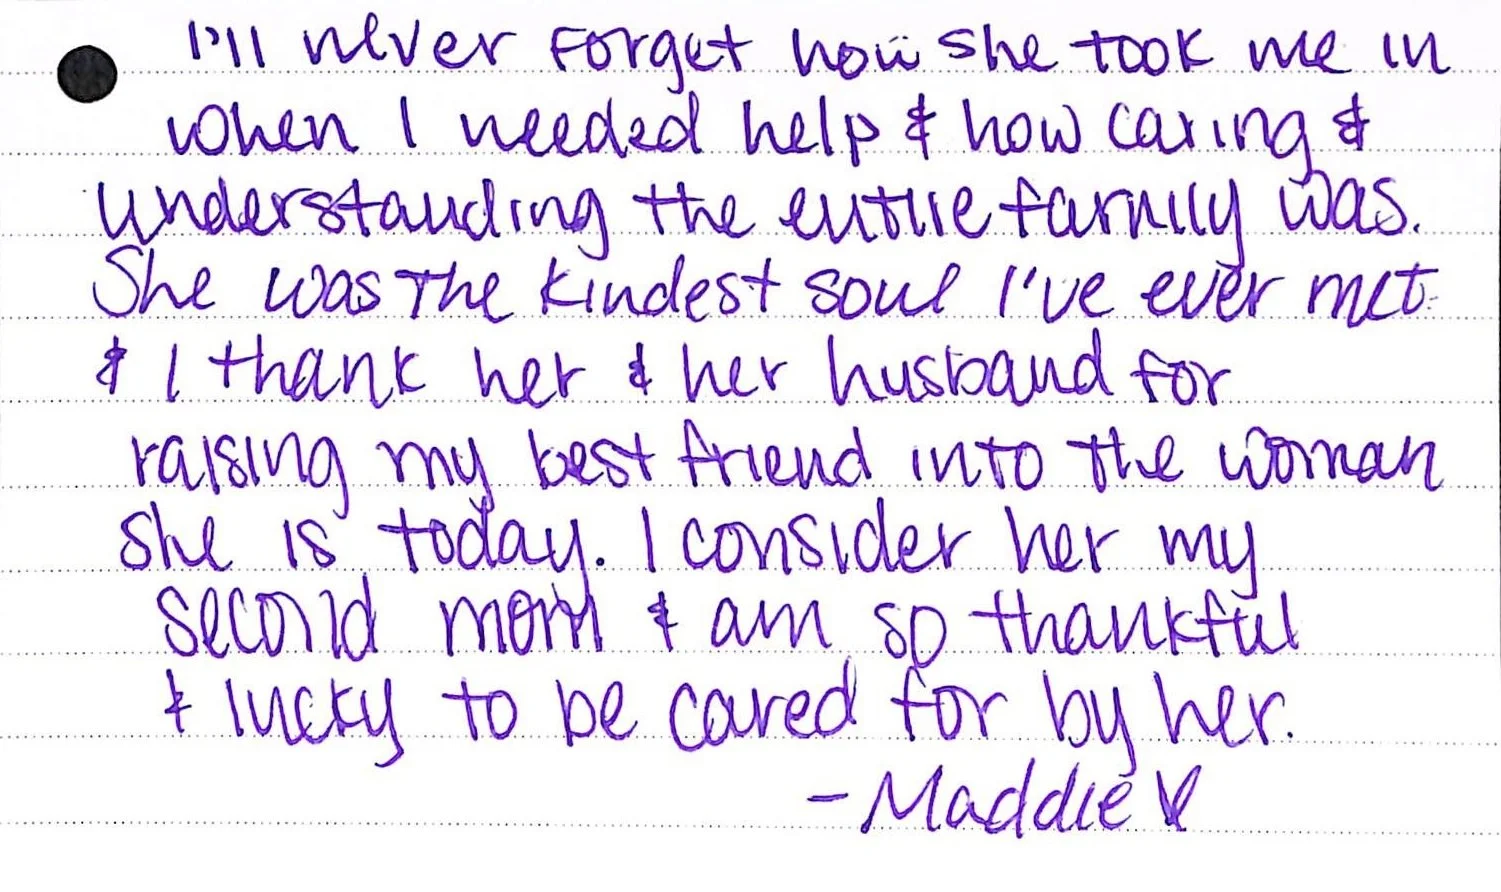 I'll never forget how she took me in
when I needed help & how caring &
understanding the entire family was.
She was the kindest soul I've ever met
& I thank her & her husband for
raising my best friend into the woman
she is today. I consider her my
second mom & am so thankful
& lucky to be cared for by her.
- Maddie ♥